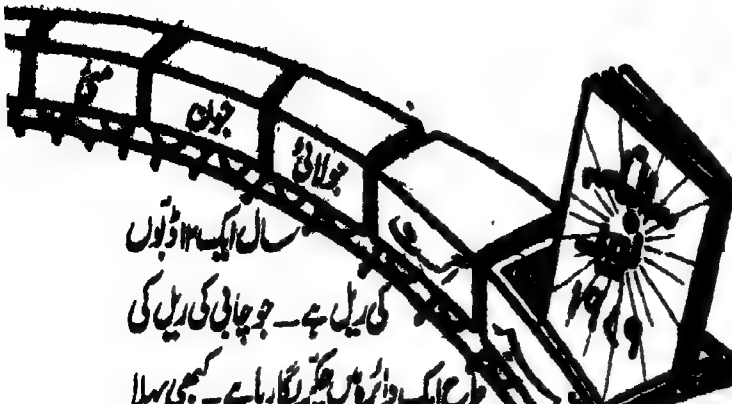 مئی
جون
جولائی
سال ایک ۱۲ ڈبّوں
کی ریل ہے۔ جو چابی کی ریل کی
طرح ایک دائرہ میں چکّر لگا رہا ہے۔ کبھی پہلا